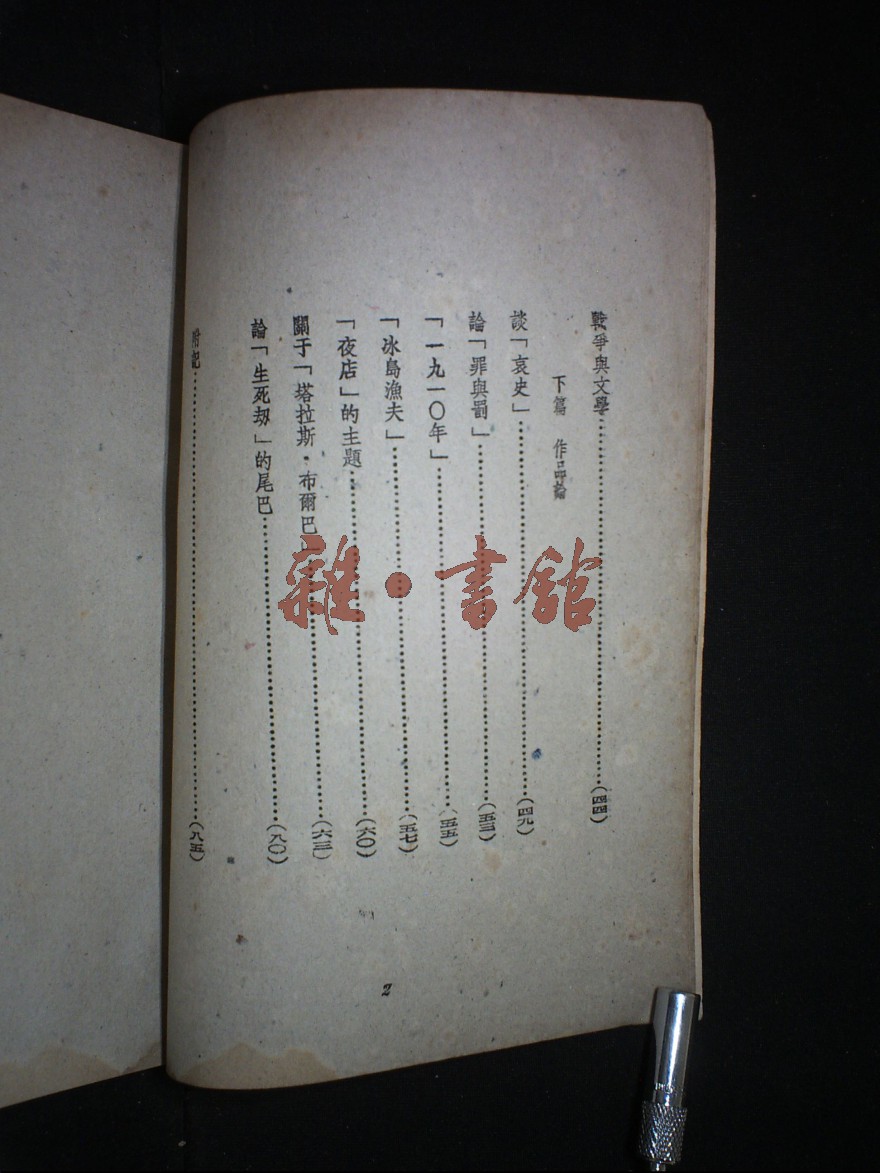 戰爭與文學……………………(四四)
下篇 作品論
談「哀史」……………………(四九)
論「罪與罰」……………………(五三)
「一九一〇年」……………………(五五)
「冰島漁夫」……………………(五七)
「夜店」的主題……………………(六〇)
關于「塔拉斯·布爾巴」……………………(六三)
論「生死劫」的尾巴……………………(八〇)
附記……………………(八五)
2
雜·書館